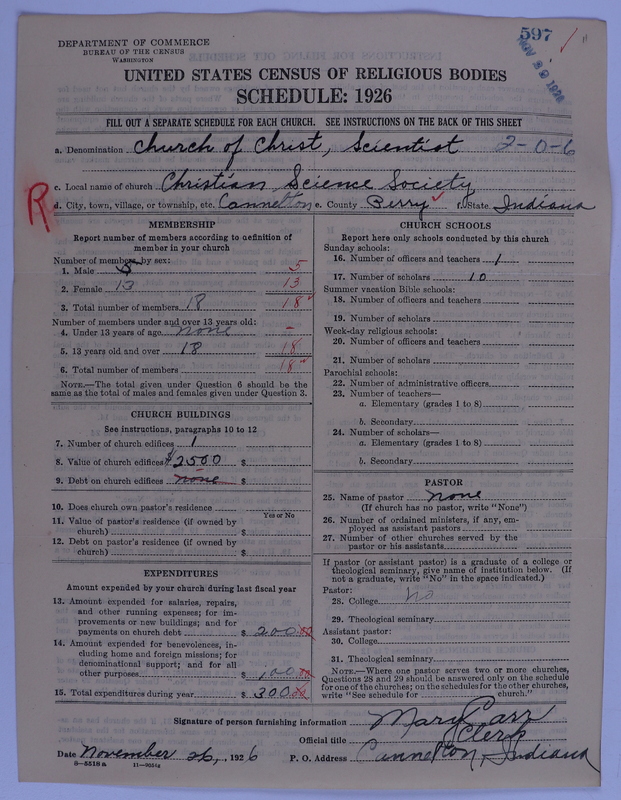 DEPARTMENT OF COMMERCE
BUREAU OF THE CENSUS
WASHINGTON
597
NOV 29 1926
UNITED STATES CENSUS OF RELIGIOUS BODIES
SCHEDULE: 1926
FILL OUT A SEPARATE SCHEDULE FOR EACH CHURCH. SEE INSTRUCTIONS ON THE BACK OF THIS SHEET
a. Denomination Church of Christ, Scientist 2-0-6
c. Local name of church Christian Science Society
R
d. City, town, village, or township, etc. Cannelton e. County Perry f. State Indiana
MEMBERSHIP
Report number of members according to definition of
member in your church
Number of members by sex:
1. Male 5 5
2. Female 13 13
3. Total number of members 18 18
Number of members under and over 13 years old:
4. Under 13 years of age none –
5. 13 years old and over 18 18
6. Total number of members 18
NOTE.—The total given under Question 6 should be the
same as the total of males and females given under Question 3.
CHURCH BUILDINGS
See instructions, paragraphs 10 to 12
7. Number of church edifices 1
8. Value of church edifices $2500 $
9. Debt on church edifices none $
10. Does church own pastor's residence
Yes or No
11. Value of pastor's residence (if owned by
church) $
12. Debt on pastor's residence (if owned by
church) $
EXPENDITURES
Amount expended by your church during last fiscal year
13. Amount expended for salaries, repairs,
and other running expenses; for im-
provements or new buildings; and for
payments on church debt $ 200.00
14. Amount expended for benevolences, in-
cluding home and foreign missions; for
denominational support; and for all
other purposes $ 100.00
15. Total expenditures during year $ 300.00
CHURCH SCHOOLS
Report here only schools conducted by this church
Sunday schools:
16. Number of officers and teachers 1
17. Number of scholars 10
Summer vacation Bible schools:
18. Number of officers and teachers
19. Number of scholars
Week-day religious schools:
20. Number of officers and teachers
21. Number of scholars
Parochial schools:
22. Number of administrative officers
23. Number of teachers—
a. Elementary (grades 1 to 8)
b. Secondary
24. Number of scholars—
a. Elementary (grades 1 to 8)
b. Secondary
PASTOR
25. Name of pastor none
(If church has no pastor, write "None")
26. Number of ordained ministers, if any, em-
ployed as assistant pastors
27. Number of other churches served by the
pastor or his assistants
If pastor (or assistant pastor) is a graduate of a college or
theological seminary, give name of institution below. (If
not a graduate, write "No" in the space indicated.)
Pastor:
28. College No
29. Theological seminary
Assistant pastor:
30. College
31. Theological seminary
NOTE.—Where one pastor serves two or more churches,
Questions 28 and 29 should be answered only on the schedule
for one of the churches; on the schedules for the other churches,
write "See schedule for church."
Signature of person furnishing information Mary Carr
Official title Clerk
Date November 26, 1926 P. O. Address Cannelton, Indiana
8-5518a 11-9051a